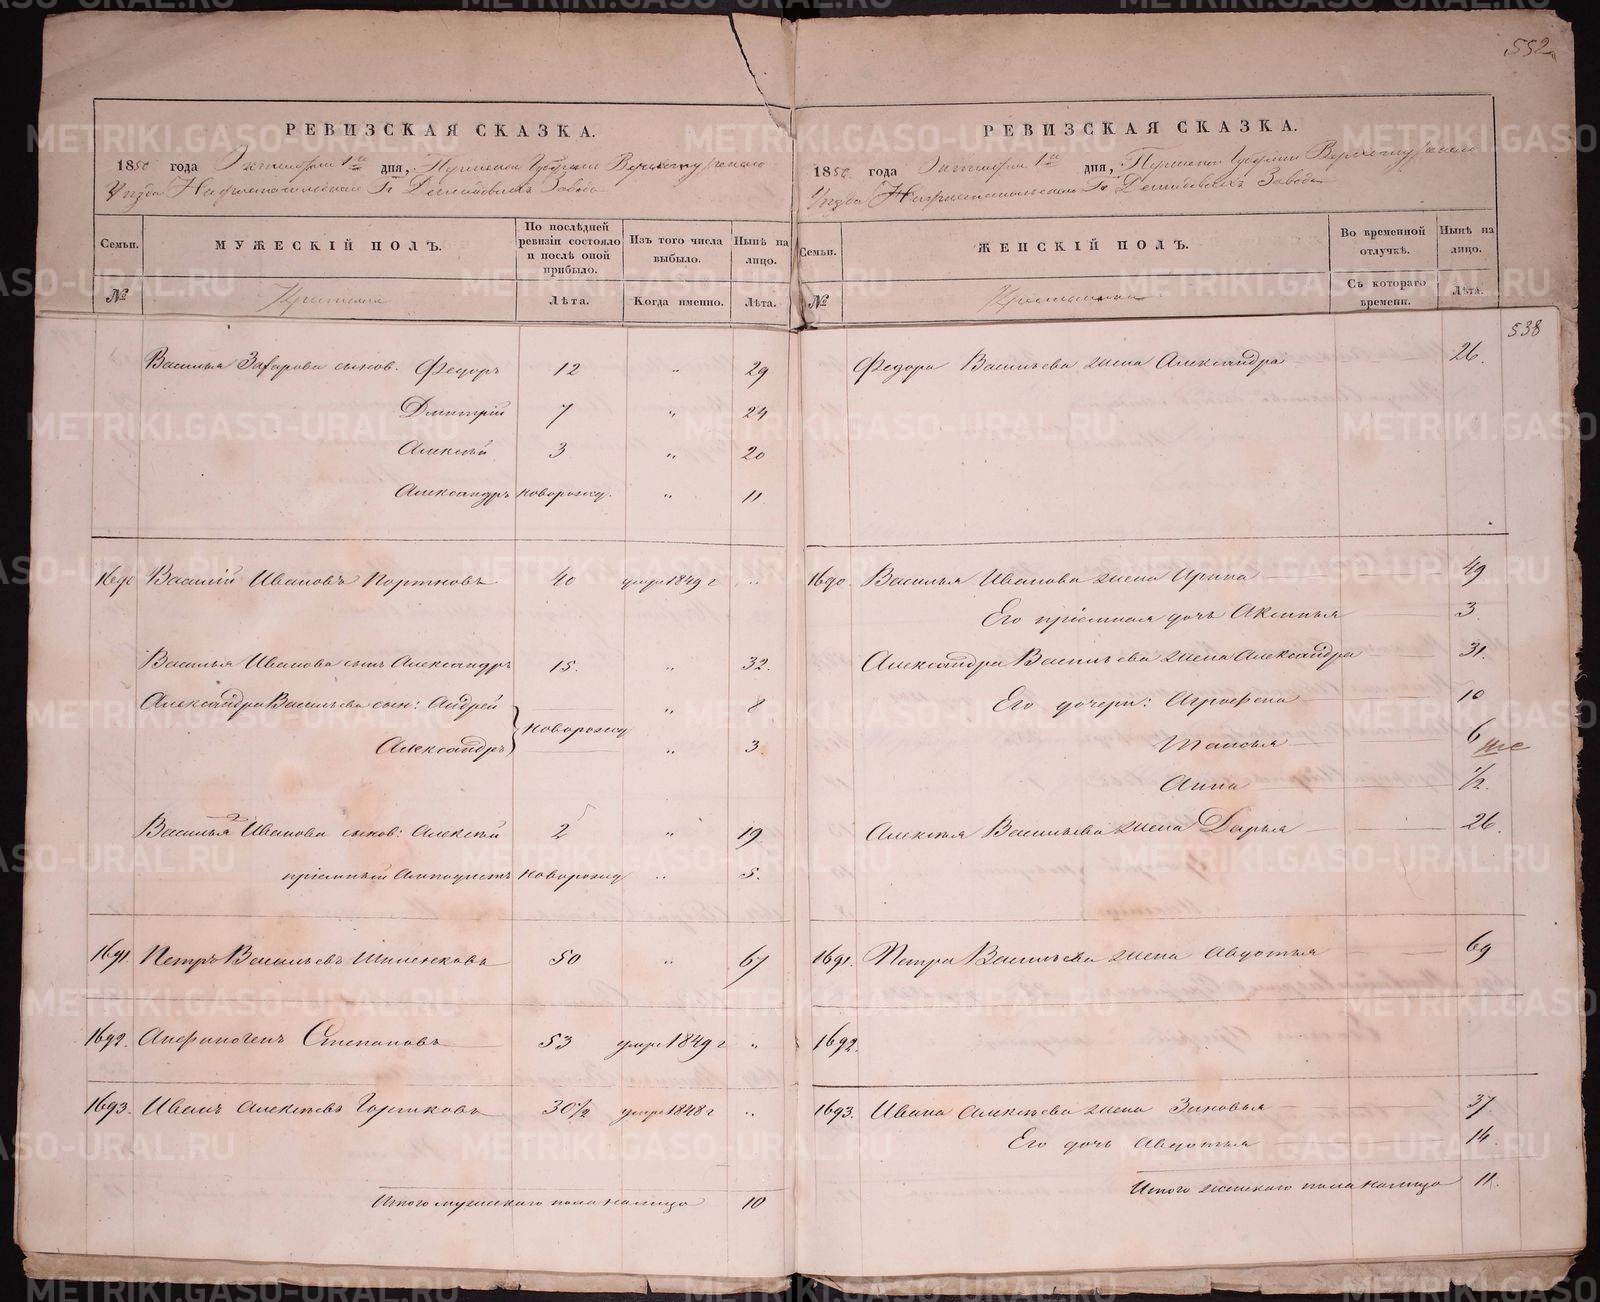 552
РЕВИЗСКАЯ СКАЗКА.
1850 года Октября 1го дня, Пермской Губернии Верхотурскаго
Уѣзда Нижнетагильскаго Гг Демидовыхъ Завода
Семьи.
МУЖЕСКІЙ ПОЛЪ.
По послѣдней ревизіи состояло и послѣ оной прибыло.
Изъ того числа выбыло.
Нынѣ на лицо.
№
Крестьяне
Лѣта.
Когда именно.
Лѣта.
Василья Захарова сынов. Федоръ 12 " 29
Дмитрій 7 " 24
Алексѣй 3 " 20
Александръ новорожд. " 11
1690 Василій Ивановъ Портновъ 40 умре 1849 г "
Василья Иванова сынъ Александръ 15. " 32.
Александра Васильева сын: Андрей " 8
новорожд
Александръ " 3
Василья Иванова сынов: Алексѣй 2 " 19
пріемный новорожд " 5.
1691. Петръ Васильевъ 50 " 67
1692. Анфиногенъ Степановъ 53 умре 1849 г "
1693. Иванъ Алексѣевъ 30 1/2 умре 1848 г "
Итого мужескаго пола налицо 10
РЕВИЗСКАЯ СКАЗКА.
1850 года Октября 1го дня, Пермской Губерніи Верхотурскаго
Уѣзда Нижнетагильскаго Гг Демидовыхъ Завода
Семьи.
ЖЕНСКІЙ ПОЛЪ.
Во временной отлучкѣ.
Нынѣ на лицо.
№
Крестьянки
Съ котораго времени.
Лѣта.
538
Федора Васильева жена Александра 26.
1690. Василья Иванова жена Ирина 49
Его пріемная дочь Аксинья 3
Александра Васильева жена Александра 31.
Его дочери: Агрофена 10
Таисья 6
Анна 1/2.
Алексѣя Васильева жена Дарья 26.
1691. Петра Васильева жена Авдотья 69
1692.
1693. Ивана Алексѣева жена Зиновья 37
Его дочь Авдотья 14
Итого женскаго пола налицо 11.
METRIKI.GASO-URAL.RU